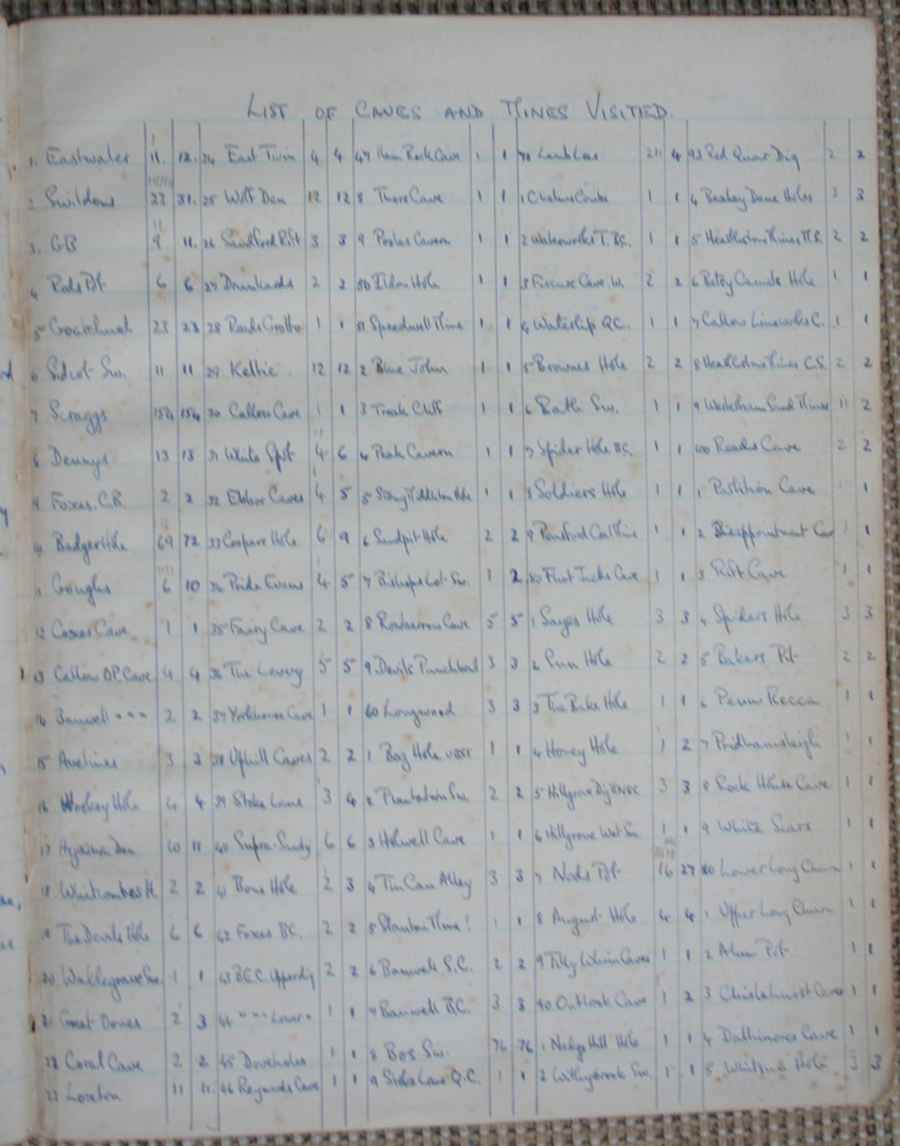 LIST OF CAVES AND MINES VISITED
1. Eastwater 11. 12. 24 East Twin 4 4 47 Ham Rock Cave 1 1 70 Lamb Leer 4 93 Red Quar Dig 2 2
2 Swildons 23 31. 25 Wolf Den 12 12 8 Thors Cave 1 1 1 1 1 4 3 3
3. GB 9 11. 26 Sandford Rift 3 3 9 Pooles Cavern 1 1 2 Waterworks T. B.C. 1 1 5 2 2
4 Rods Pot 6 6 27 Drunkards 2 2 50 Eldon Hole 1 1 3 2 2 6 Hole 1 1
5 Goatchurch 23 23 28 Reads Grotto 1 1 51 Speedwell Mine 1 1 4 Waterslip Q.C. 1 1 7 Callow Limeworks C. 1 1
6 Sidcot Sw. 11 11 29 Keltic 12 12 2 Blue John 1 1 5 Brownes Hole 2 2 8 2 2
7 Scraggs 154 154 30 Callow Cave 1 1 3 Treak Cliff 1 1 6 Bath Sw. 1 1 9 11 2
8 Dennys 13 13 31 White Spot 4 6 4 Peak Cavern 1 1 7 Spider Hole B.C. 1 1 100 Reads Cave 2 2
9 Foxes. C.B. 2 2 32 Ebbor Caves 4 5 5 1 1 8 Soldiers Hole 1 1 1 Partition Cave 1 1
Badger Hole 69 72 33 Coopers Hole 6 9 6 Sandpit Hole 2 2 9 Pensford Coal Mine 1 1 2 Disappointment Cave 1 1
1 Goughs 6 10 34 Pride Evans 4 5 7 Bishops Lot Sw. 1 2 80 Flint Jacks Cave 1 1 3 Rift Cave 1 1
12 Cave 1 1 35 Fairy Cave 2 2 8 Rowbarrow Cave 5 5 1 Sayes Hole 3 3 4 Spiders Hole 3 3
13 Callow O.P. Cave 4 4 36 The Lovery 5 5 9 Devils Punchbowl 3 3 2 Hole 2 2 5 Bakers Pit 2 2
14 Banwell " " " 2 2 37 Cave 1 1 60 Longwood 3 3 3 Hole 1 1 6 Penn Recca 1 1
15 Avelines 3 3 38 Uphill Caves 2 2 1 Bog Hole 1 1 4 Honey Hole 1 2 7 Pridhamsleigh 1 1
16 Wookey Hole 4 4 39 Stoke Lane 3 4 2 Plantation Sw. 2 2 5 Hillgrove Dig 3 3 8 Rock House Cave 1 1
17 Hyaena Den 10 11 40 6 6 3 Holwell Cave 1 1 6 Hillgrove Wet Sw. 1 1 9 White Scars 1 1
18 2 2 41 Bone Hole 2 3 4 Tin Can Alley 3 3 7 Nods Pot 16 27 10 Lower Long Churn 1 1
19 The Devils Hole 6 6 42 Foxes BC. 2 2 5 Stanton Mine! 1 1 8 August Hole 4 4 1 Upper Long Churn 1 1
20 Waldegrave Sw. 1 1 43 B.E.C. Upper dig 2 2 6 Banwell S.C. 2 2 9 Tilly Whim Caves 1 1 2 Alum Pot 1 1
21 Great Dones 2 3 44 " " " Lower " 1 1 7 Banwell B.C. 3 3 90 Outlook Cave 1 2 3 Chislehurst Caves 1 1
22 Coral Cave 2 2 45 Doveholes 1 1 8 Bos Sw. 76 76 1 Nedge Hill Hole 1 1 4 Dallimores Cave 1 1
23 Loxton 11 11. 46 Reynards Cave 1 1 9 Stoke Lane Q.C. 1 1 2 Withybrook Sw. 1 1 5 Hole 3 3